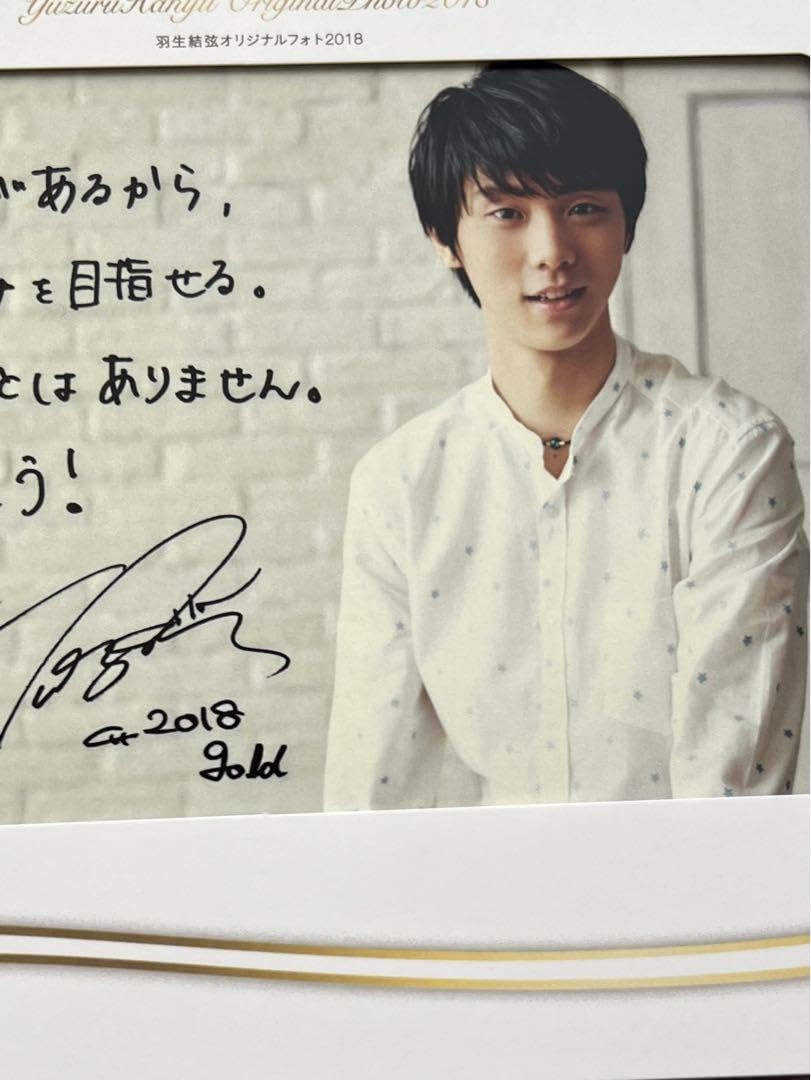 YuzuruHanyu OriginalPhoto2018
羽生結弦オリジナルフォト2018
があるから,
を目指せる。
とはありません。
う!
2018
gold